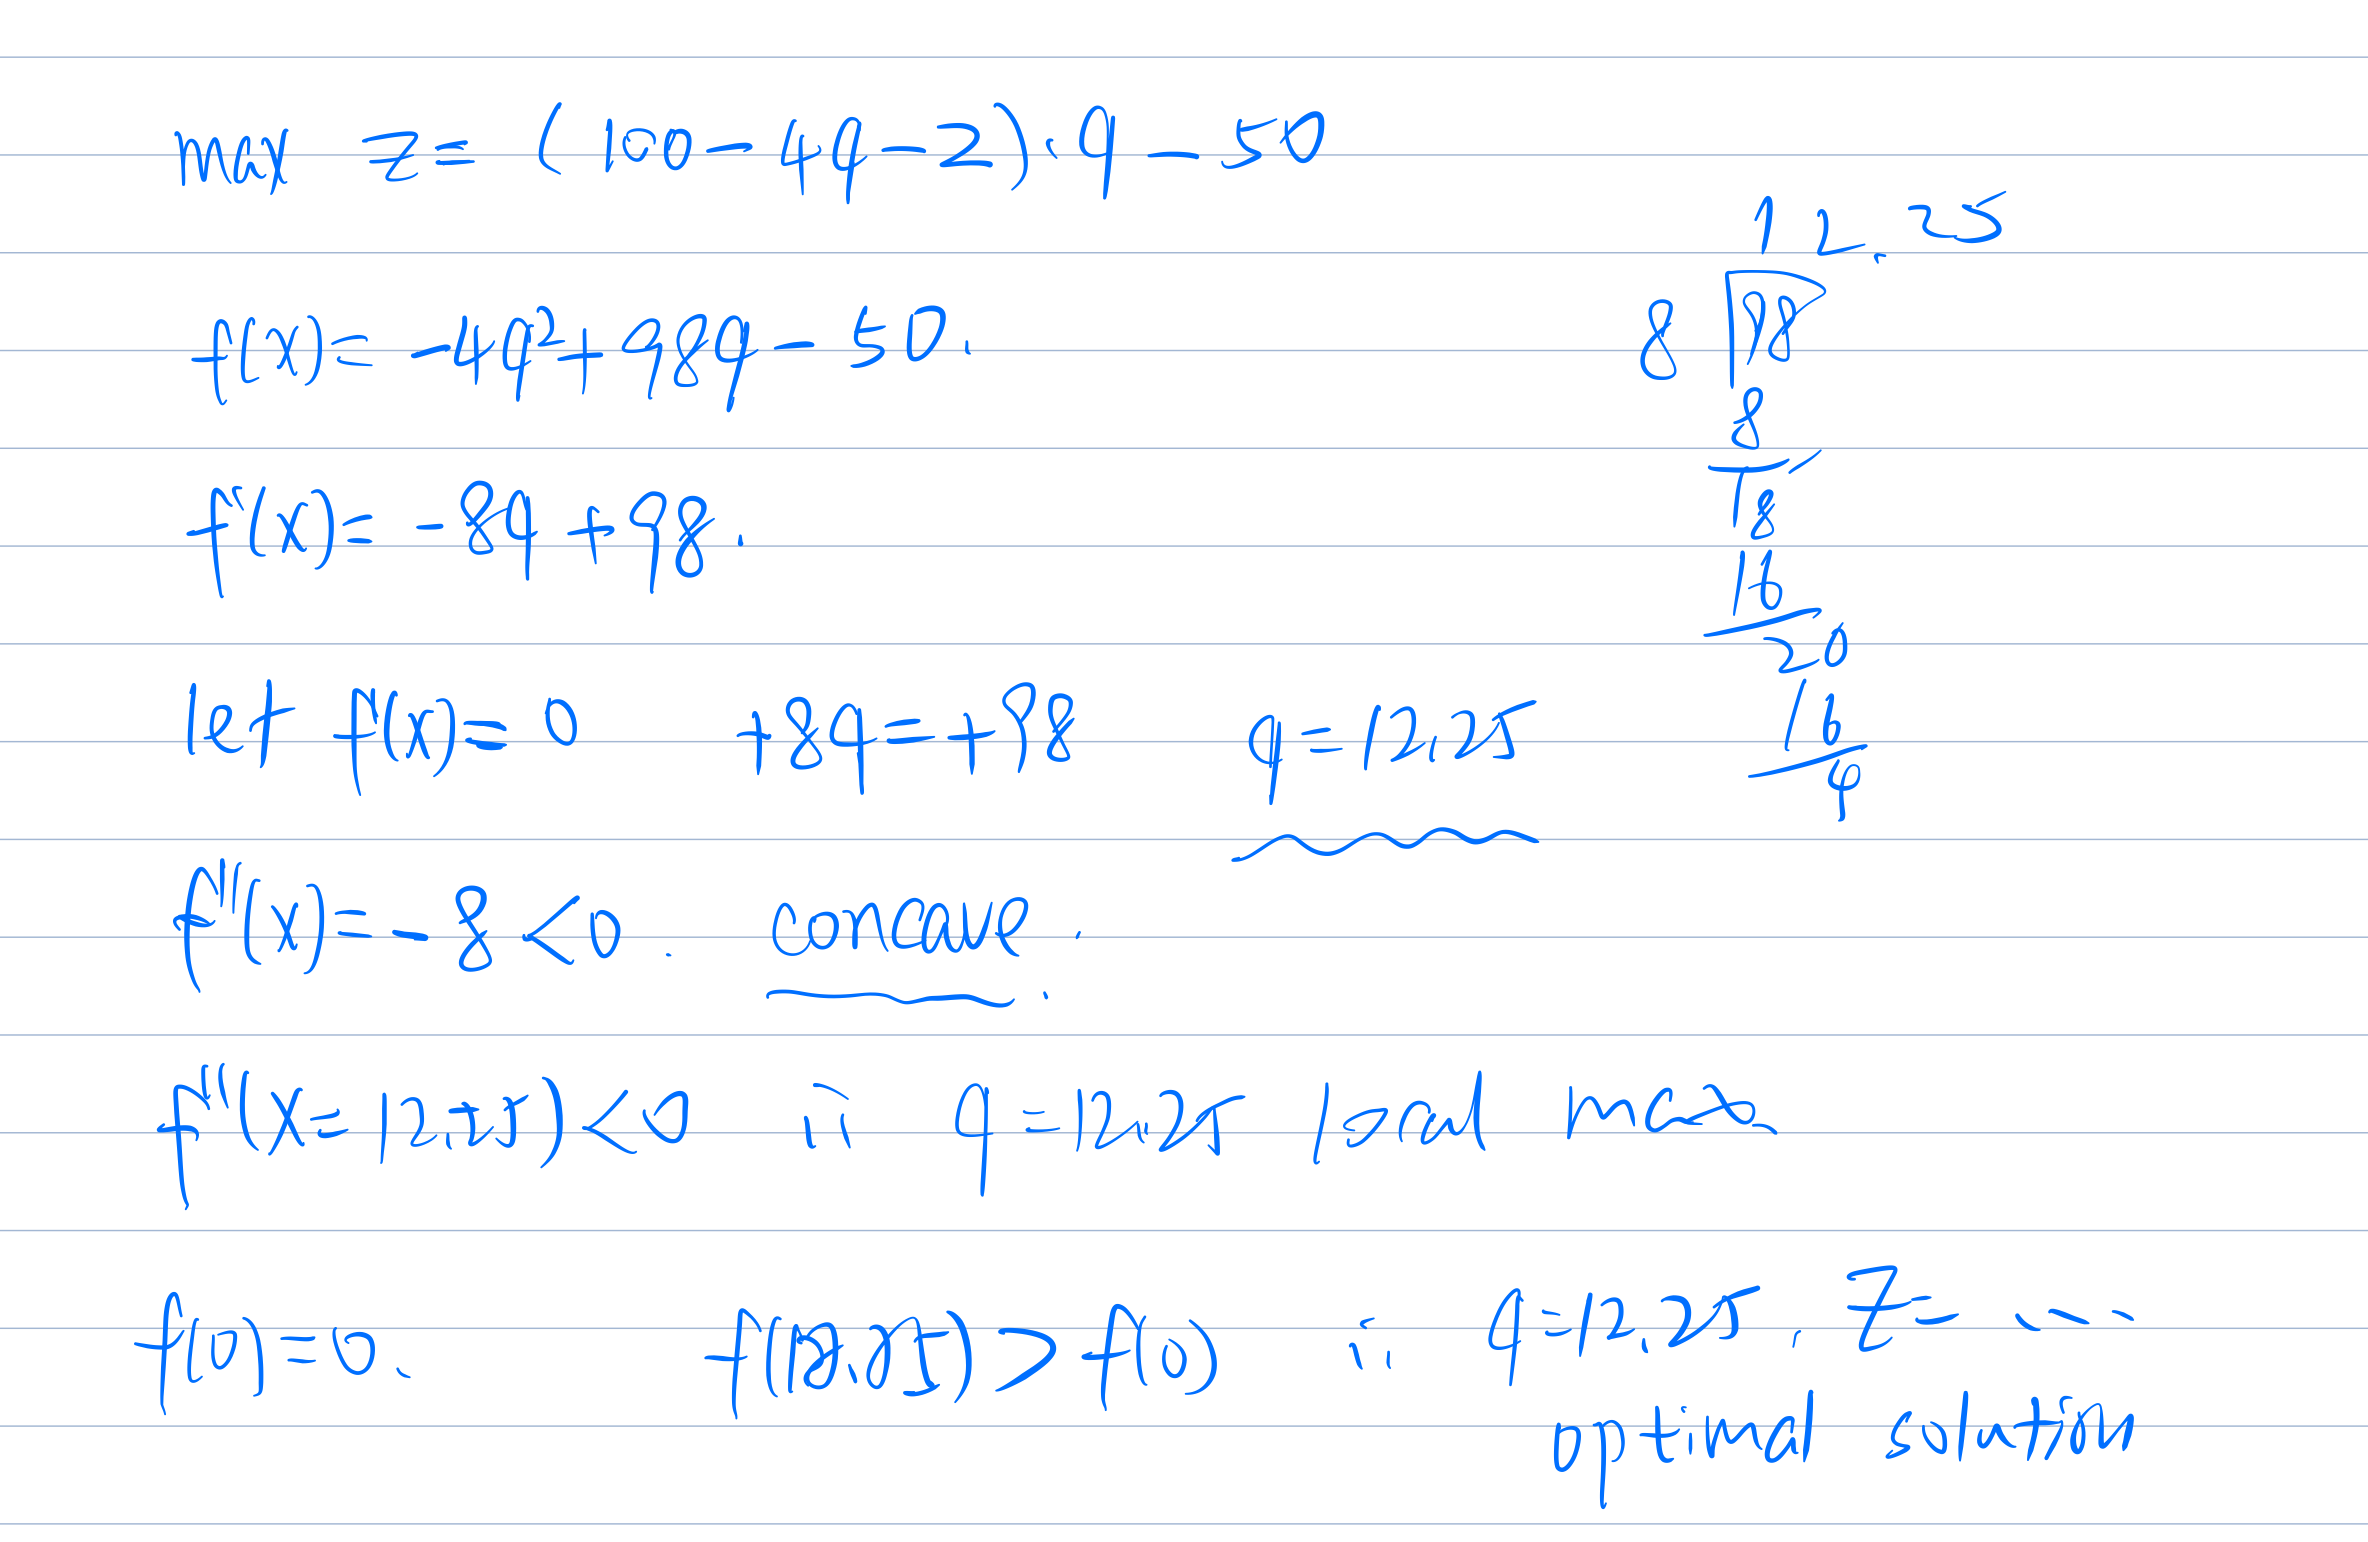 max z = (100-4q-2)·q - 50
f(x) = -4q²+98q - 50.
f'(x) = -8q+98.
let f'(x) = 0 +8q = +98 q = 12.25
f''(x) = -8 < 0. concave.
f''(x=12.25) < 0 ∴ q = 12.25 local max
f(0) = 0. f(12.25) > f(0) ∴ q=12.25, Z= - - -
optimal solution
12.25
8 98
8
18
16
20
16
4